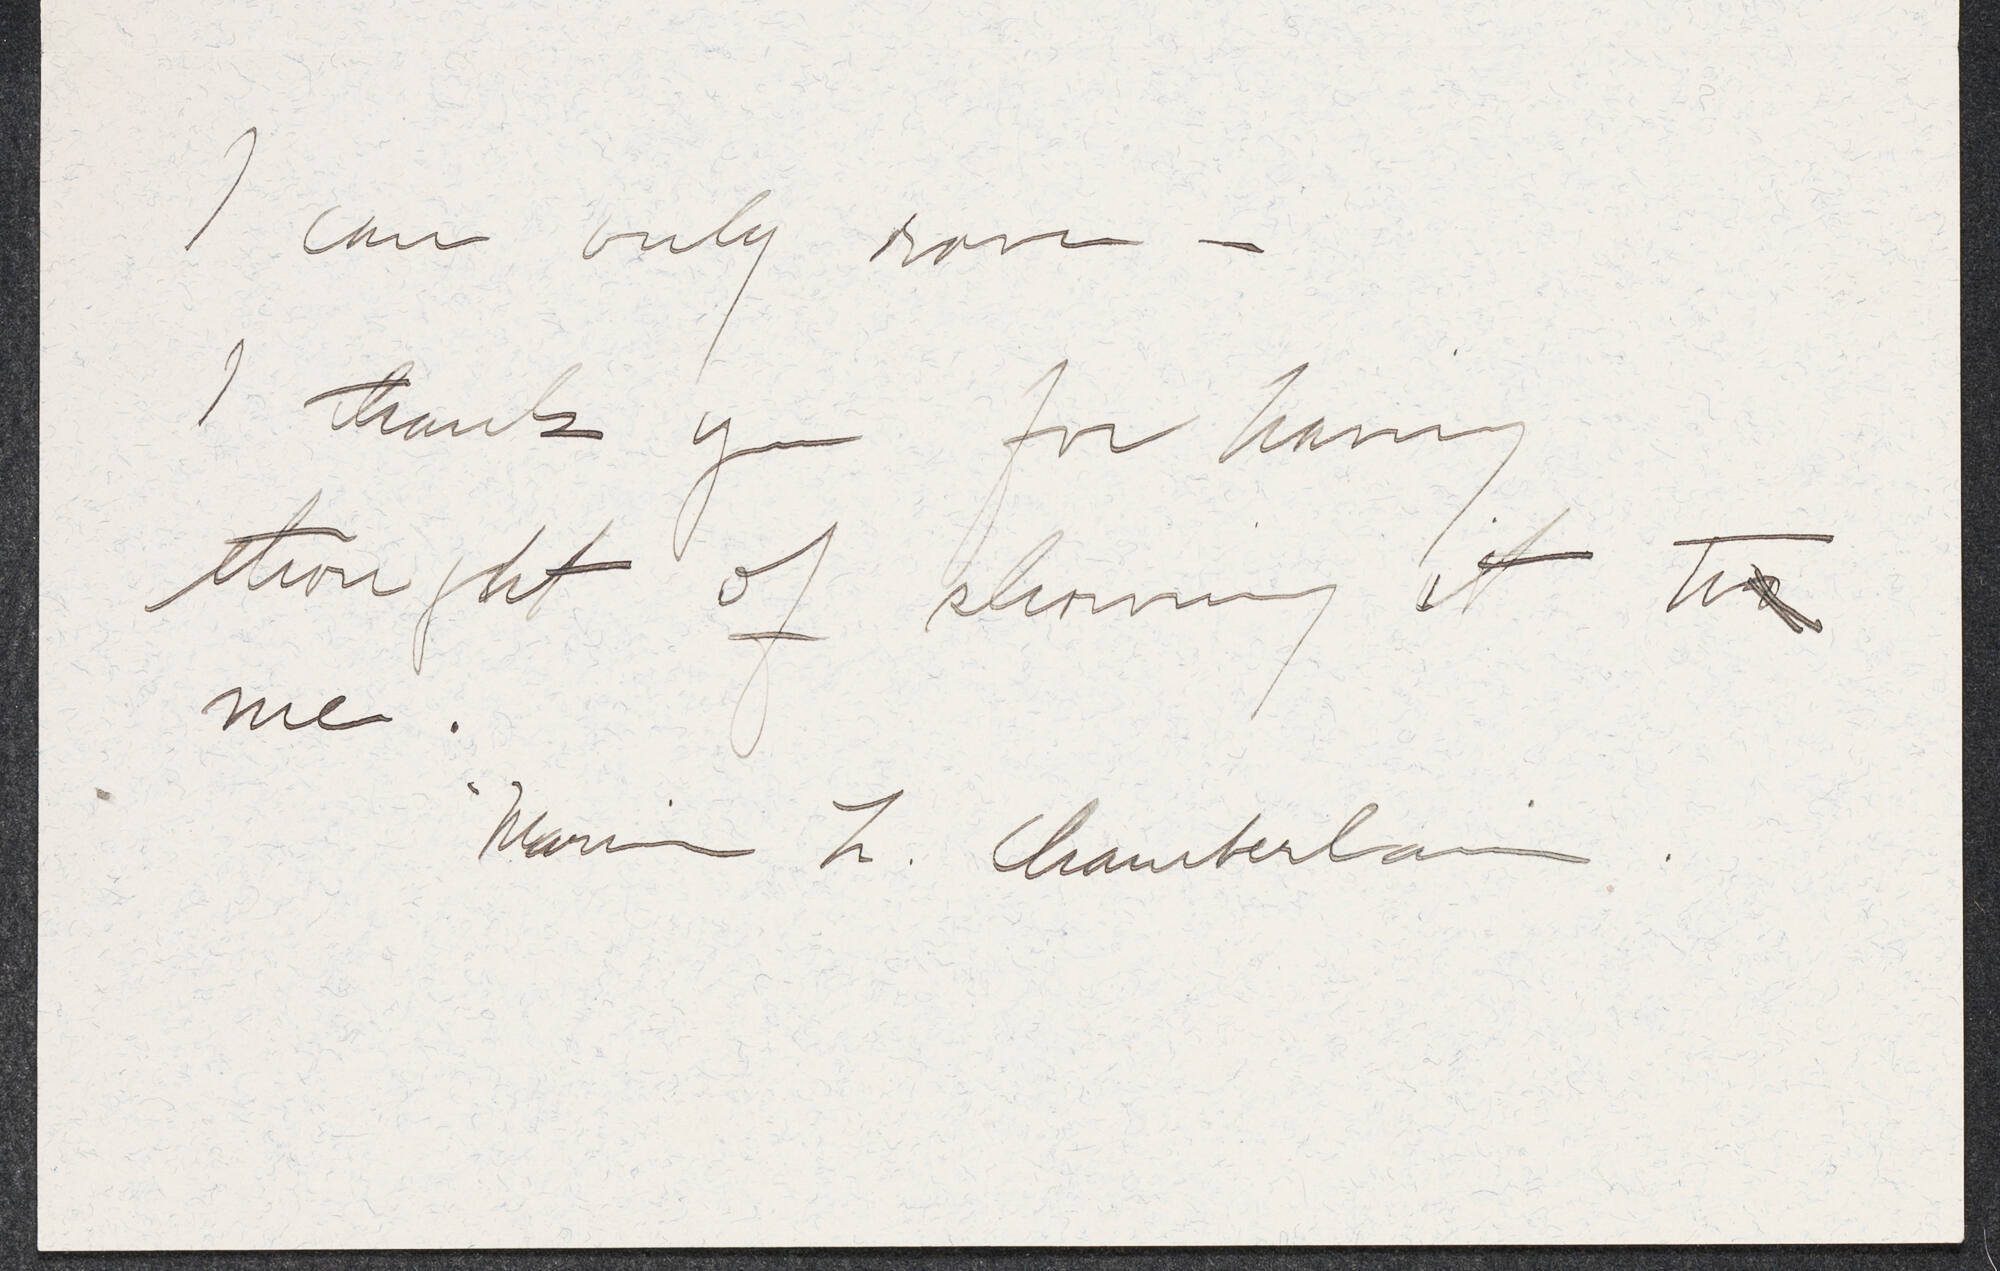 I can only rave —
I thank you for having
thought of showing it to
me.
L. Chamberlain.